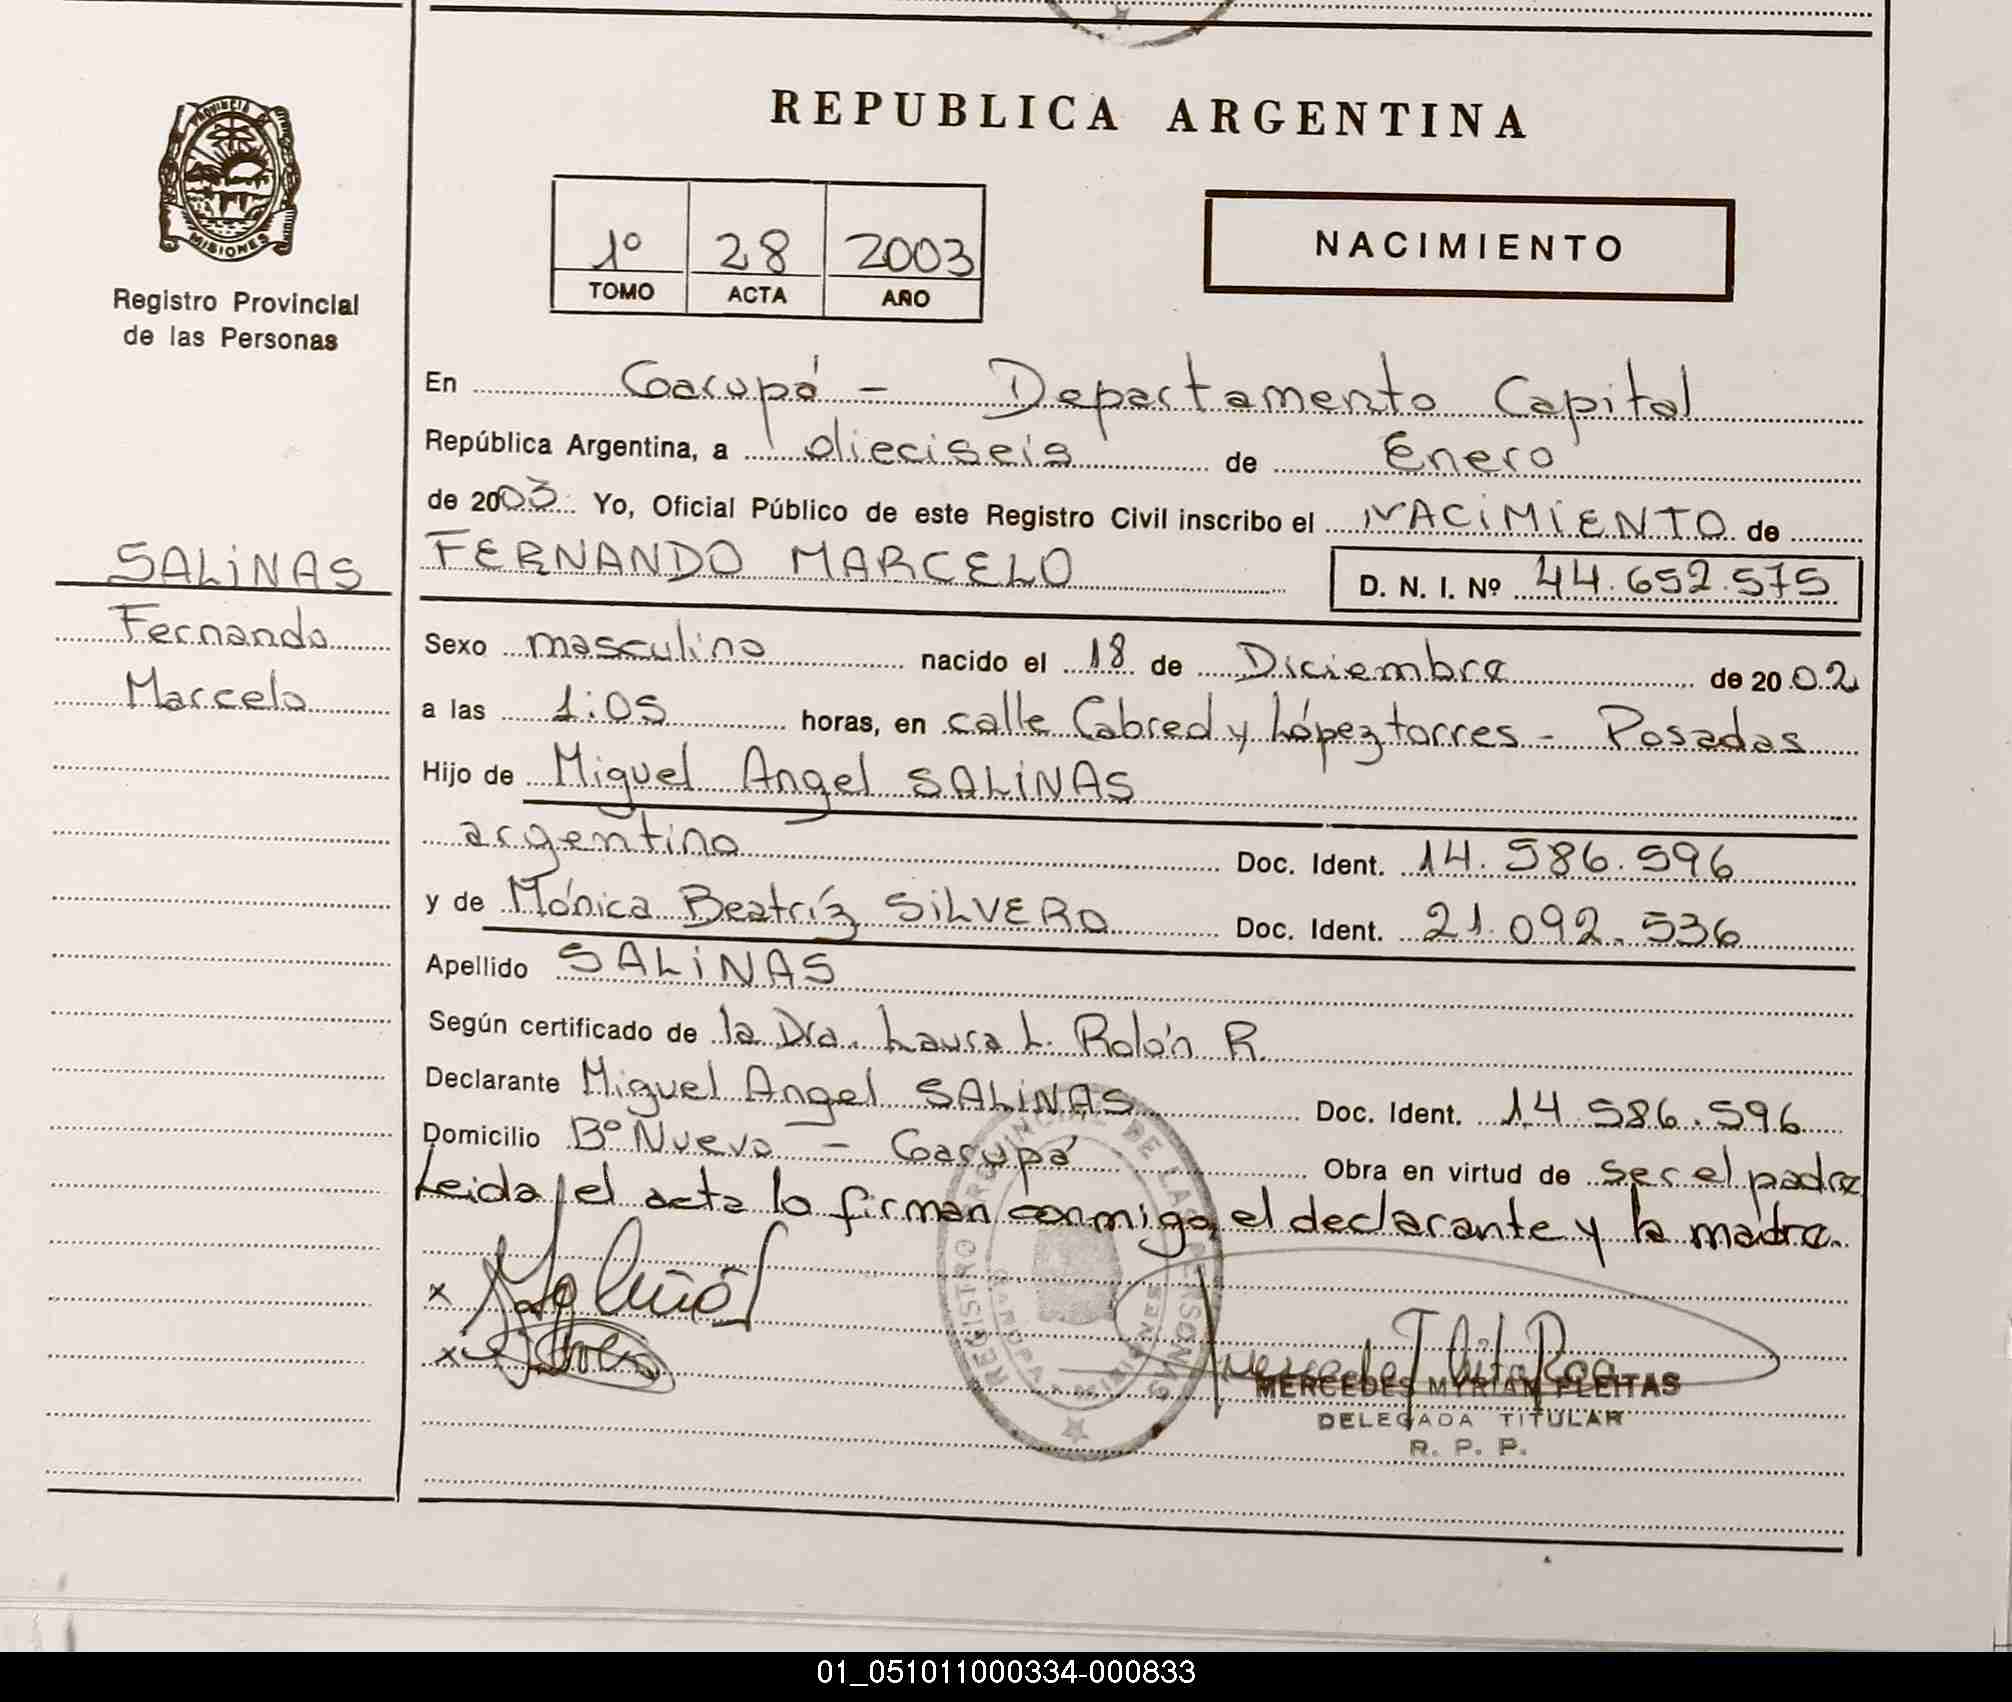 REPUBLICA ARGENTINA
PROVINCIA DE
MISIONES
Registro Provincial
de las Personas
1º 28 2003
TOMO ACTA AÑO
NACIMIENTO
En Garupá - Departamento Capital
República Argentina, a dieciseis de Enero
de 2003 Yo, Oficial Público de este Registro Civil inscribo el NACIMIENTO de
SALINAS
Fernando
Marcelo
FERNANDO MARCELO D. N. I. Nº 44.652.575
Sexo masculino nacido el 18 de Diciembre de 2002
a las 1:05 horas, en calle Cabred y López torres - Posadas
Hijo de Miguel Angel SALINAS
argentino Doc. Ident. 14.586.596
y de Mónica Beatríz SILVERO Doc. Ident. 21.092.536
Apellido SALINAS
Según certificado de la Dra. Laura L. Rolón R.
Declarante Miguel Angel SALINAS Doc. Ident. 14.586.596
Domicilio Bº Nuevo - Garupá Obra en virtud de ser el padre
Leida el acta lo firman conmigo, el declarante y la madre.
x
x
REGISTRO PROVINCIAL DE LAS PERSONAS
GARUPA MISIONES
MERCEDES MYRIAN FLEITAS
DELEGADA TITULAR
R. P. P.
01_051011000334-000833